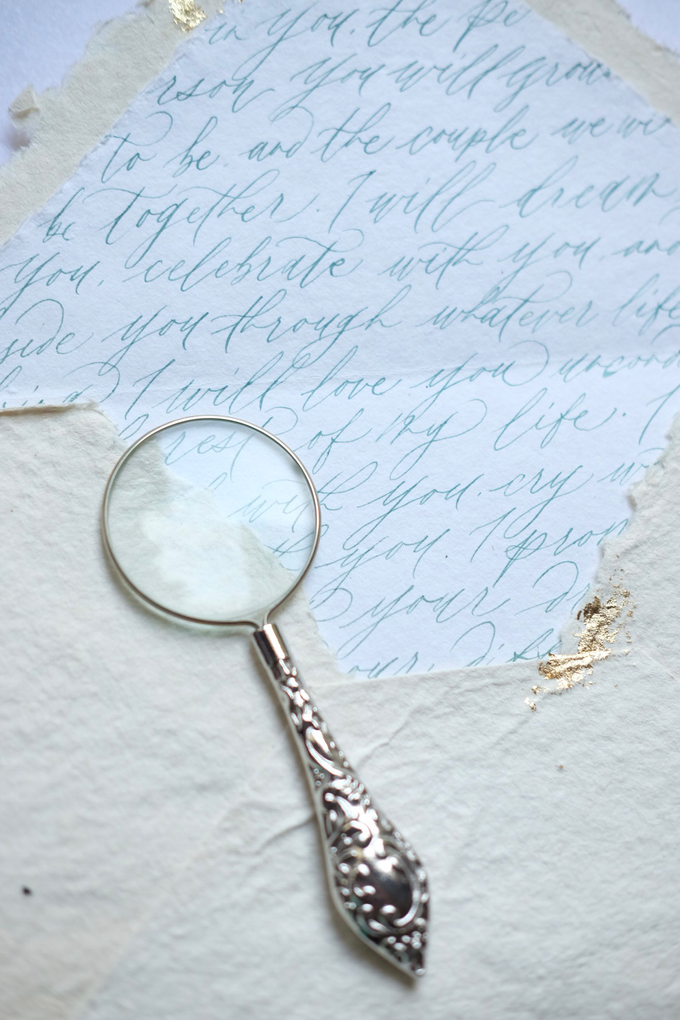 in you. the pe
rson you will grow
to be. and the couple we wi
be together. I will dream
you, celebrate with you, and
side you through whatever life
I will love you uncond
rest of my life. I
with you. cry wi
you. I prom
your
your